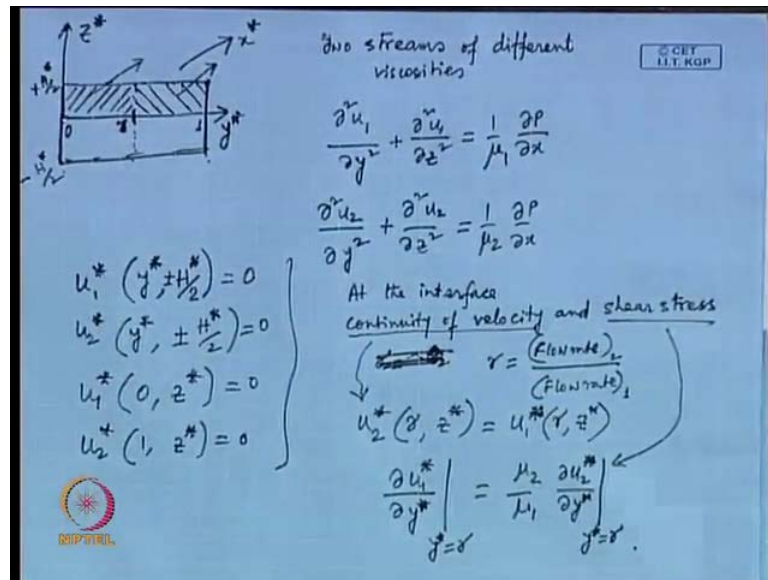 z*
x*
+H*/2
0 γ 1 y*
-H*/2
Two streams of different
viscosities
© CET
I.I.T. KGP
∂²u₁/∂y² + ∂²u₁/∂z² = 1/μ₁ ∂P/∂x
∂²u₂/∂y² + ∂²u₂/∂z² = 1/μ₂ ∂P/∂x
u₁* (y*, ±H*/2) = 0
u₂* (y*, ±H*/2) = 0
u₁* (0, z*) = 0
u₂* (1, z*) = 0
At the interface
continuity of velocity and shear stress
γ = (Flowrate)₂/(Flowrate)₁
u₂* (γ, z*) = u₁* (γ, z*)
∂u₁*/∂y* |y*=γ = μ₂/μ₁ ∂u₂*/∂y* |y*=γ .
NPTEL